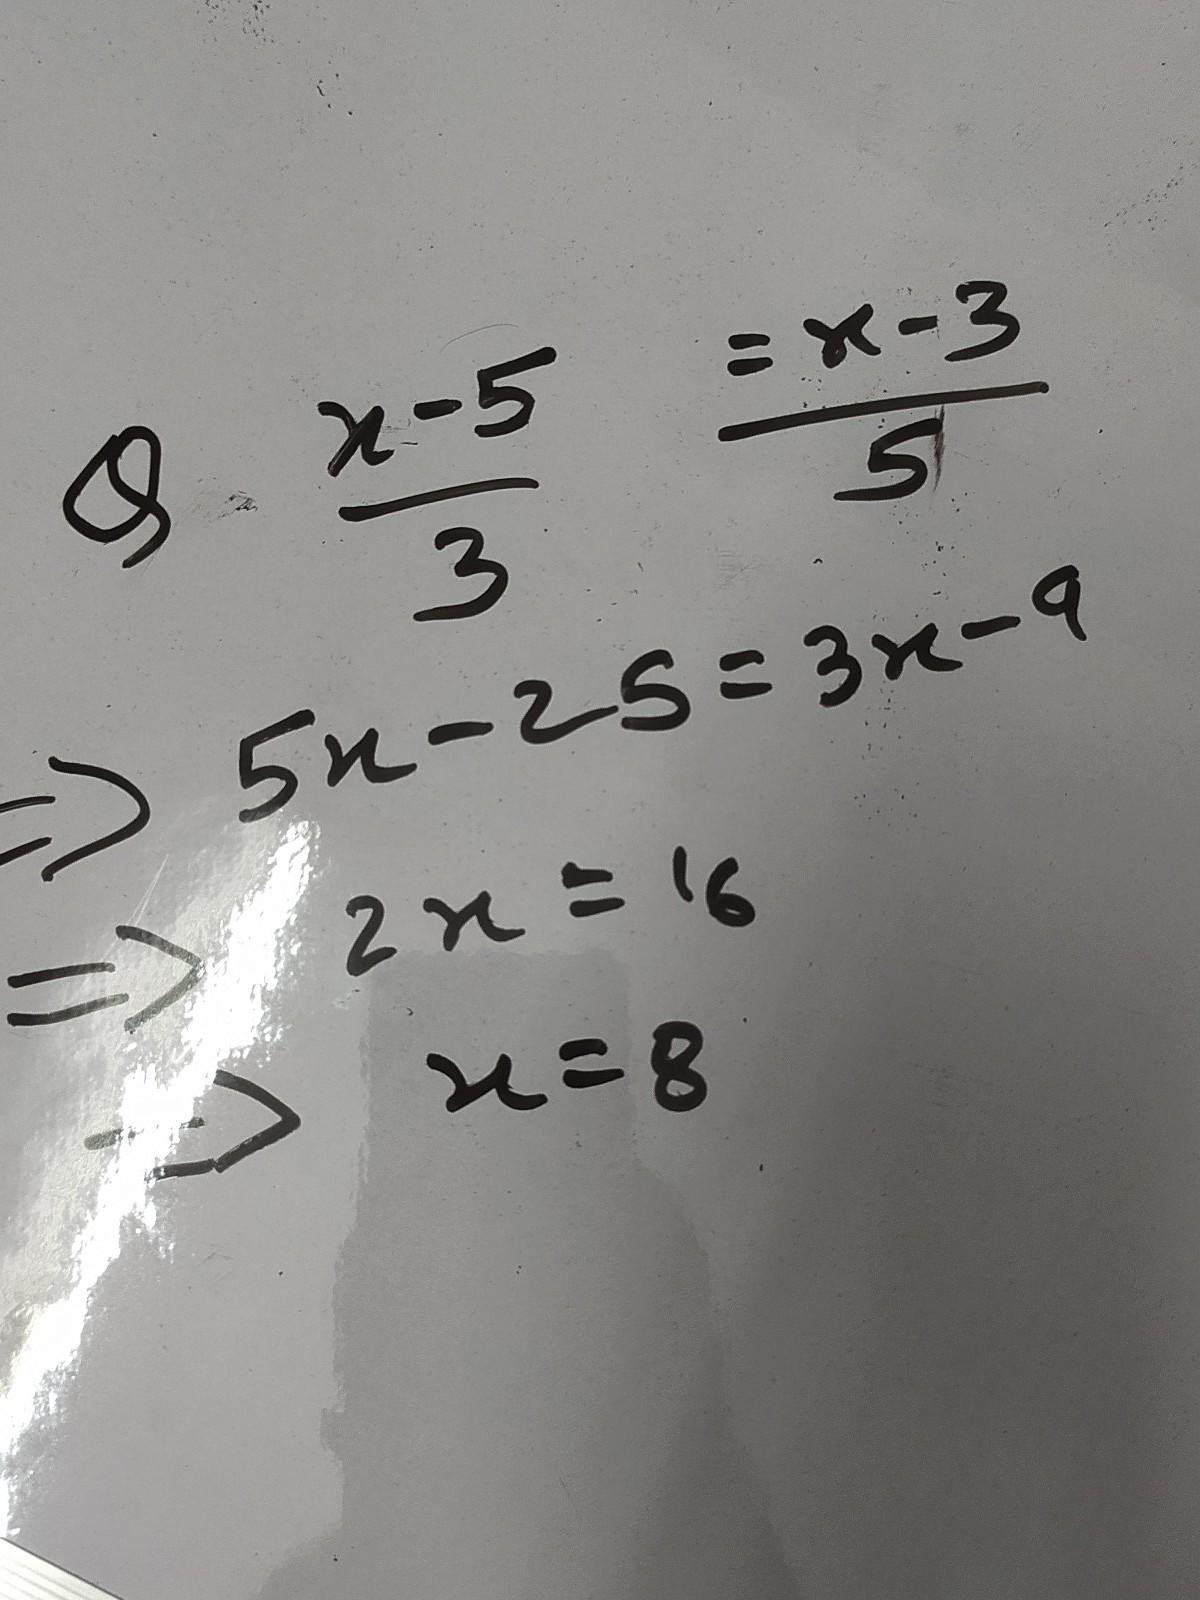 Q x-5/3 = x-3/5
=> 5x-25=3x-9
=> 2x = 16
=> x=8